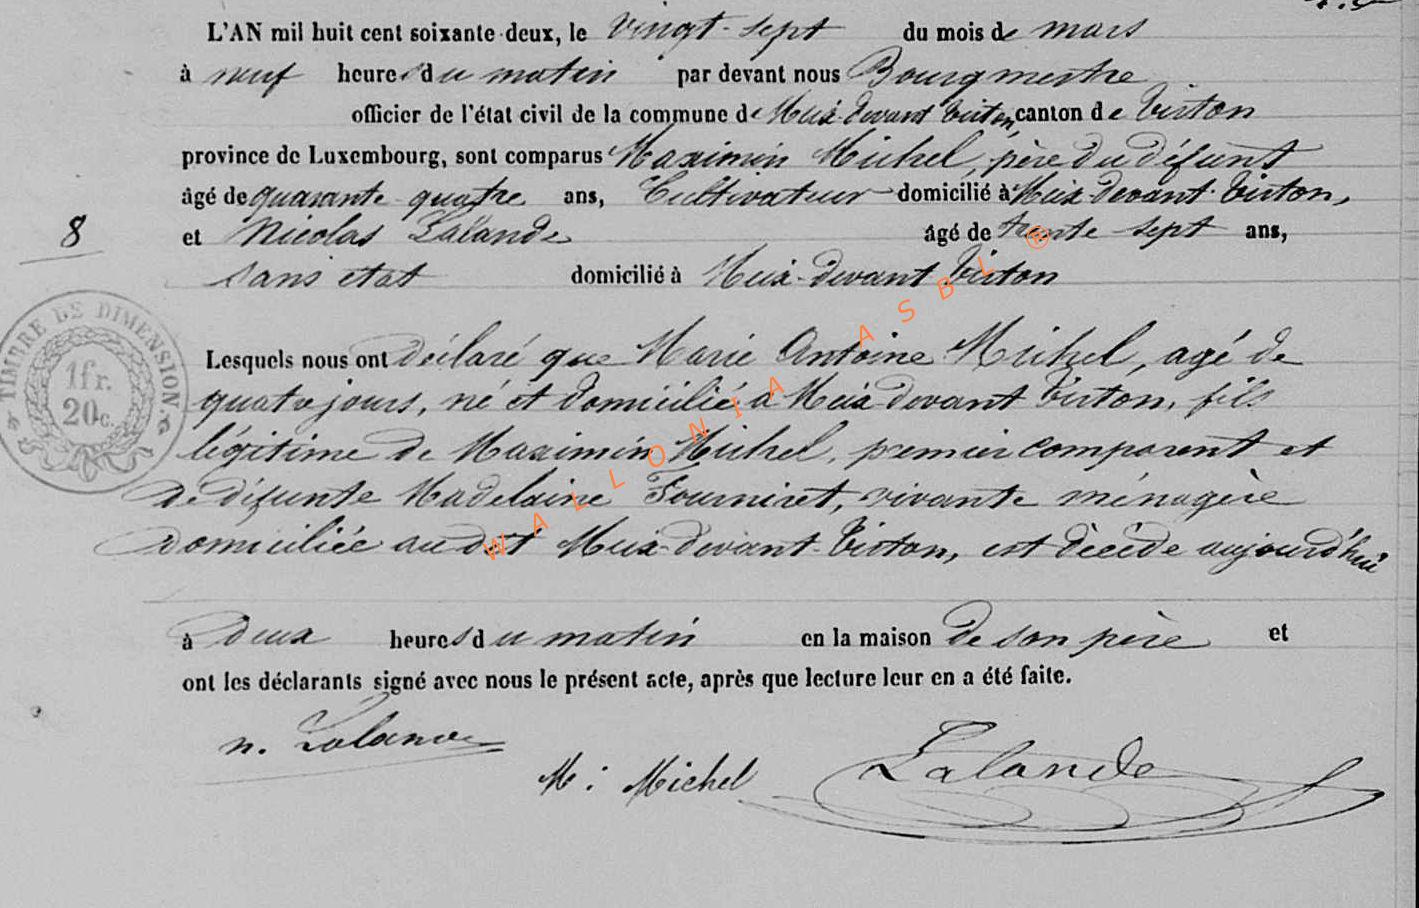 L'AN mil huit cent soixante-deux, le vingt-sept du mois de mars
à neuf heures du matin par devant nous Bourgmestre
officier de l'état civil de la commune de Meix-devant-Virton, canton de Virton
province de Luxembourg, sont comparus Maximin Michel, père du défunt
âgé de quarante-quatre ans, Cultivateur domicilié à Meix-devant-Virton,
8
et Nicolas Lalande âgé de trente-sept ans,
sans état domicilié à Meix-devant-Virton
TIMBRE DE DIMENSION.
1 fr.
20 c.
Lesquels nous ont déclaré que Marie Antoine Michel, agé de
quatre jours, né et domicilié à Meix-devant Virton, fils
légitime de Maximin Michel, premier comparent et
de défunte Madelaine Fourniret, vivante ménagère
domiciliée audit Meix-devant-Virton, est décédé aujourd'hui
à deux heures du matin en la maison de son père et
ont les déclarants signé avec nous le présent acte, après que lecture leur en a été faite.
n. Lalande
M : Michel
Lalande
WALLONIA ASBL ®